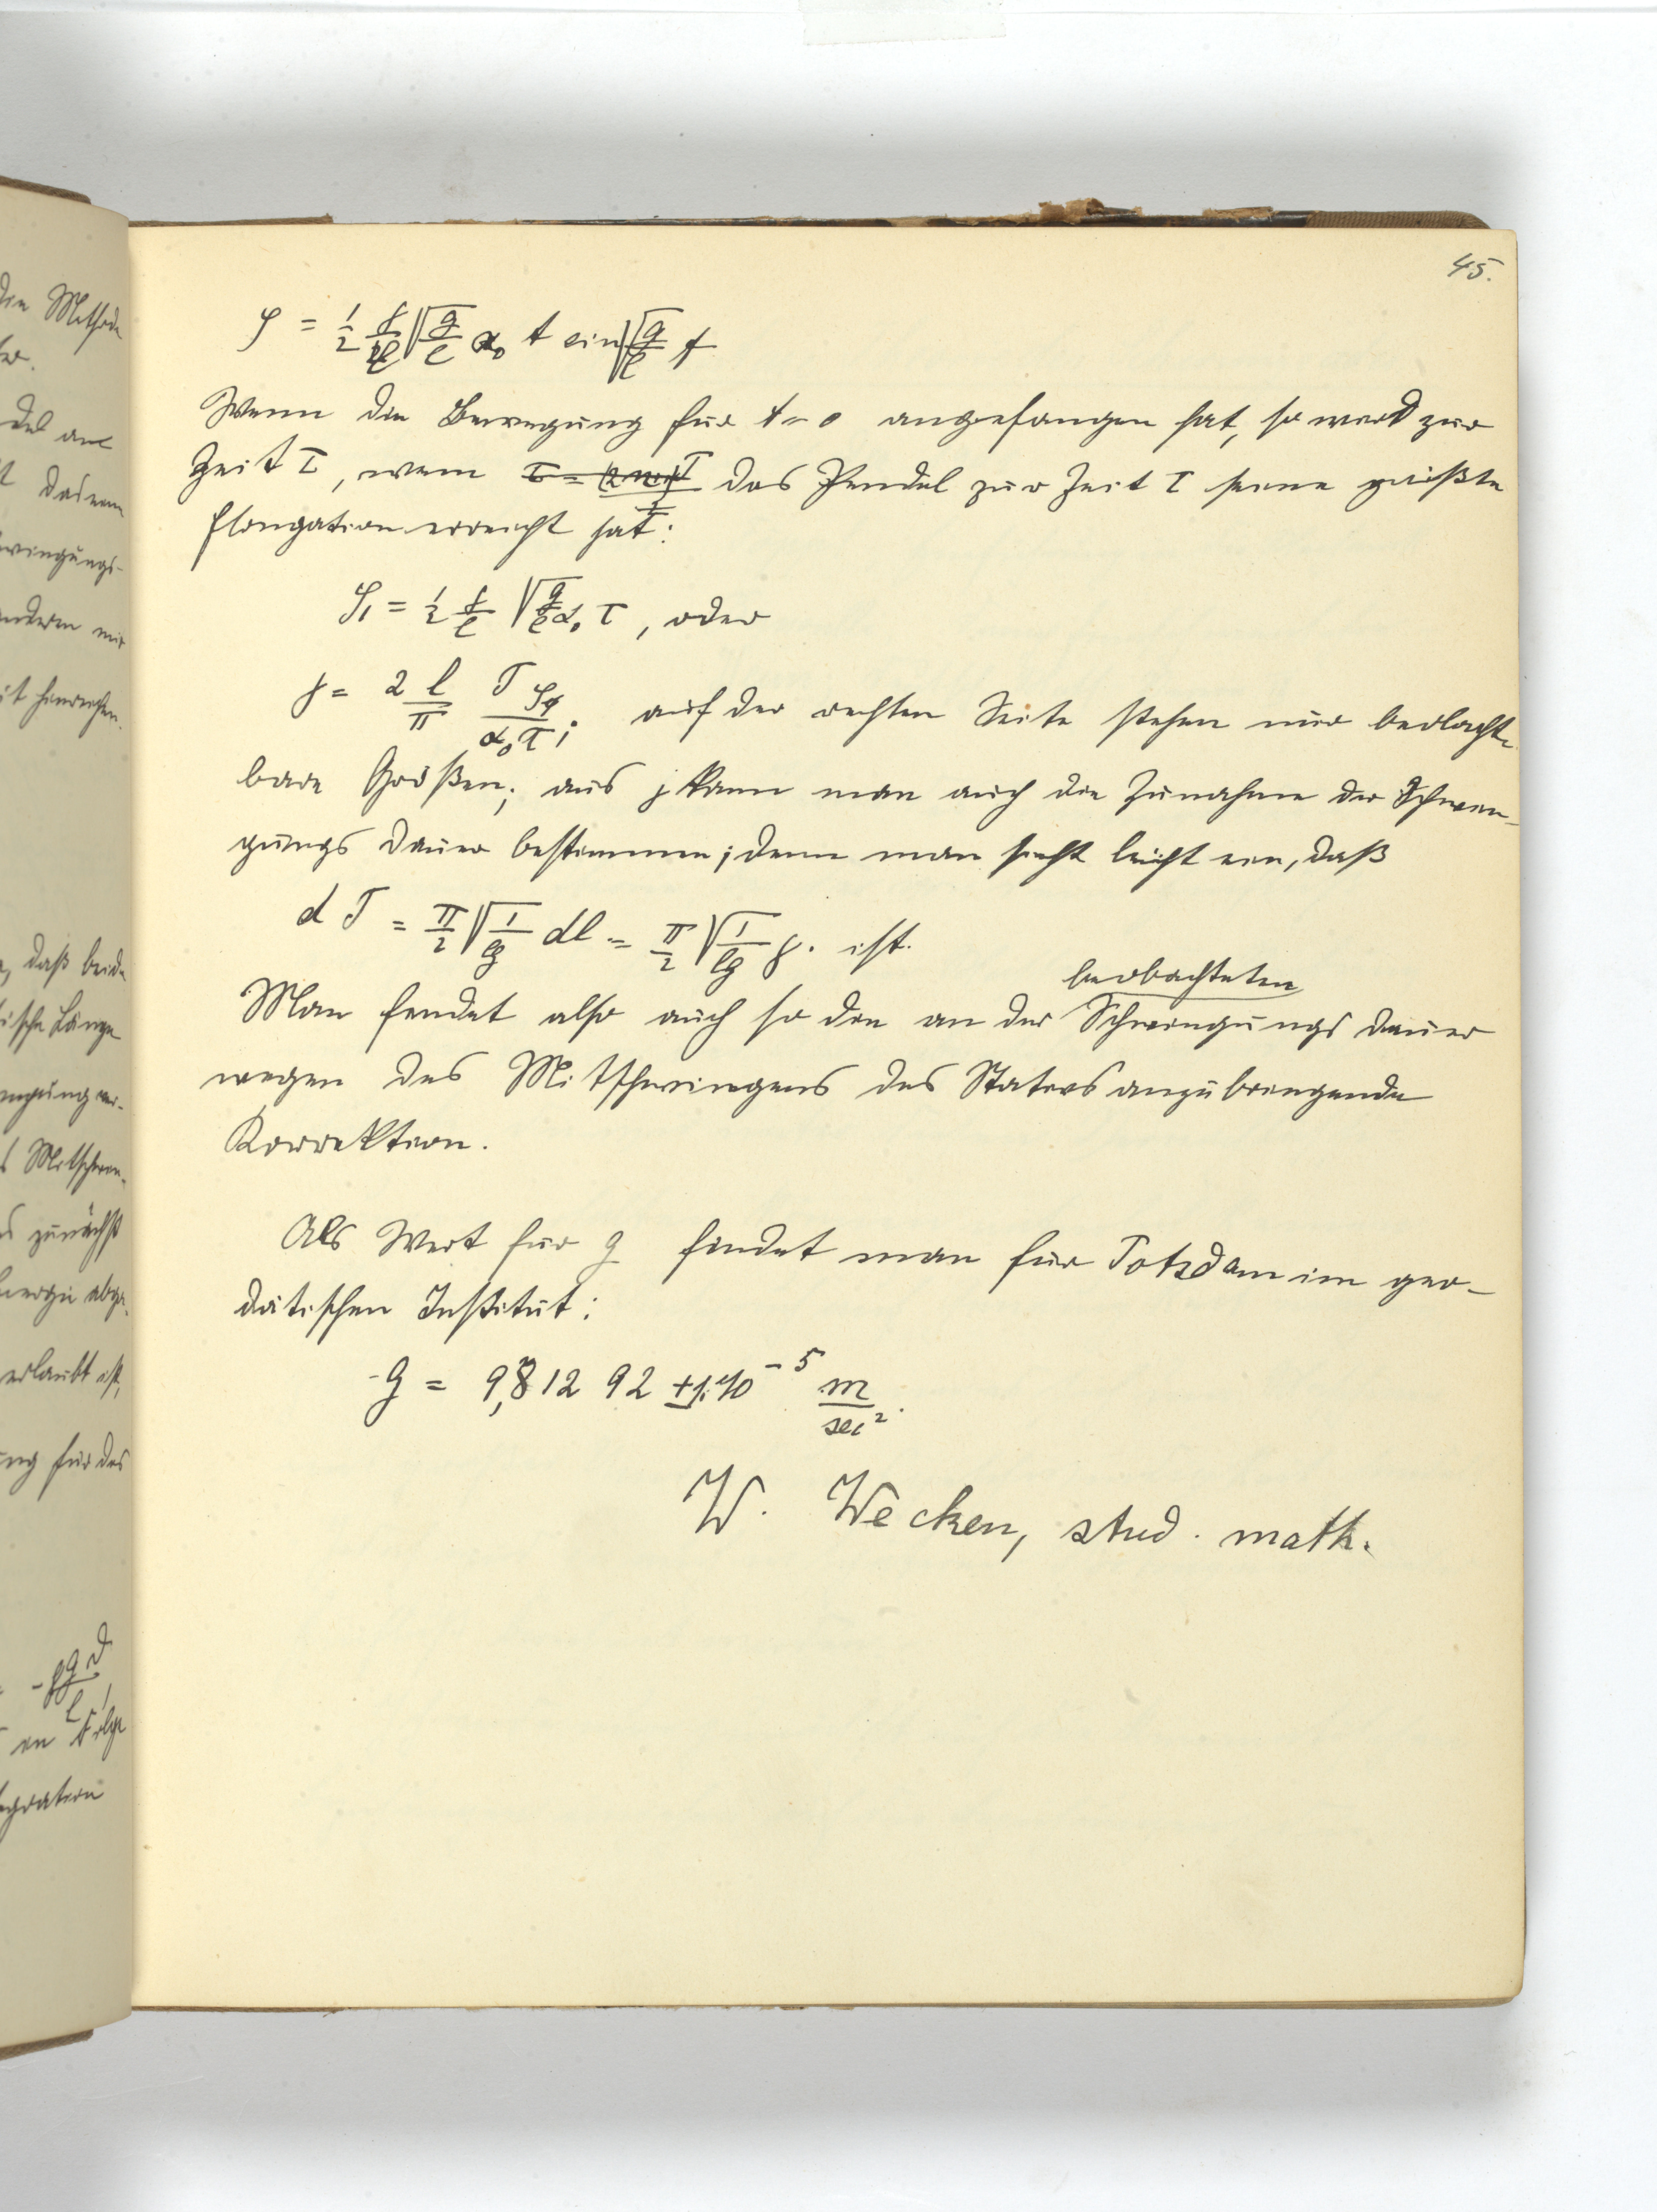 45.
φ = 1/2 γ/l √(g/l) α₀ t sin √(g/l) t
Wenn die Bewegung für t = 0 angefangen hat, so wird zur
Zeit τ, wenn das Pendel zur Zeit τ seine größte
Elongation erreicht hat:
φ₁ = 1/2 γ/l √(g/l) α₀ τ, oder
γ = 2 l/π T φ₁/α₀ τ; auf der rechten Seite stehen nur beobacht-
bare Größen; aus γ kann man auch die Zunahme der Schwin-
gungsdauer bestimmen; denn man sieht leicht ein, daß
d T = π/2 √(1/lg) dl = π/2 √(1/lg) γ. ist.
beobachteten
Man findet also auch so die an der Schwingungsdauer
wegen des Mitschwingens des Stativs anzubringende
Korrektion.
Als Wert für g findet man für Potsdam im geo-
dätischen Institut:
g = 9,81292 ± 1·10⁻⁵ m/sec².
W. Wecken, stud. math.